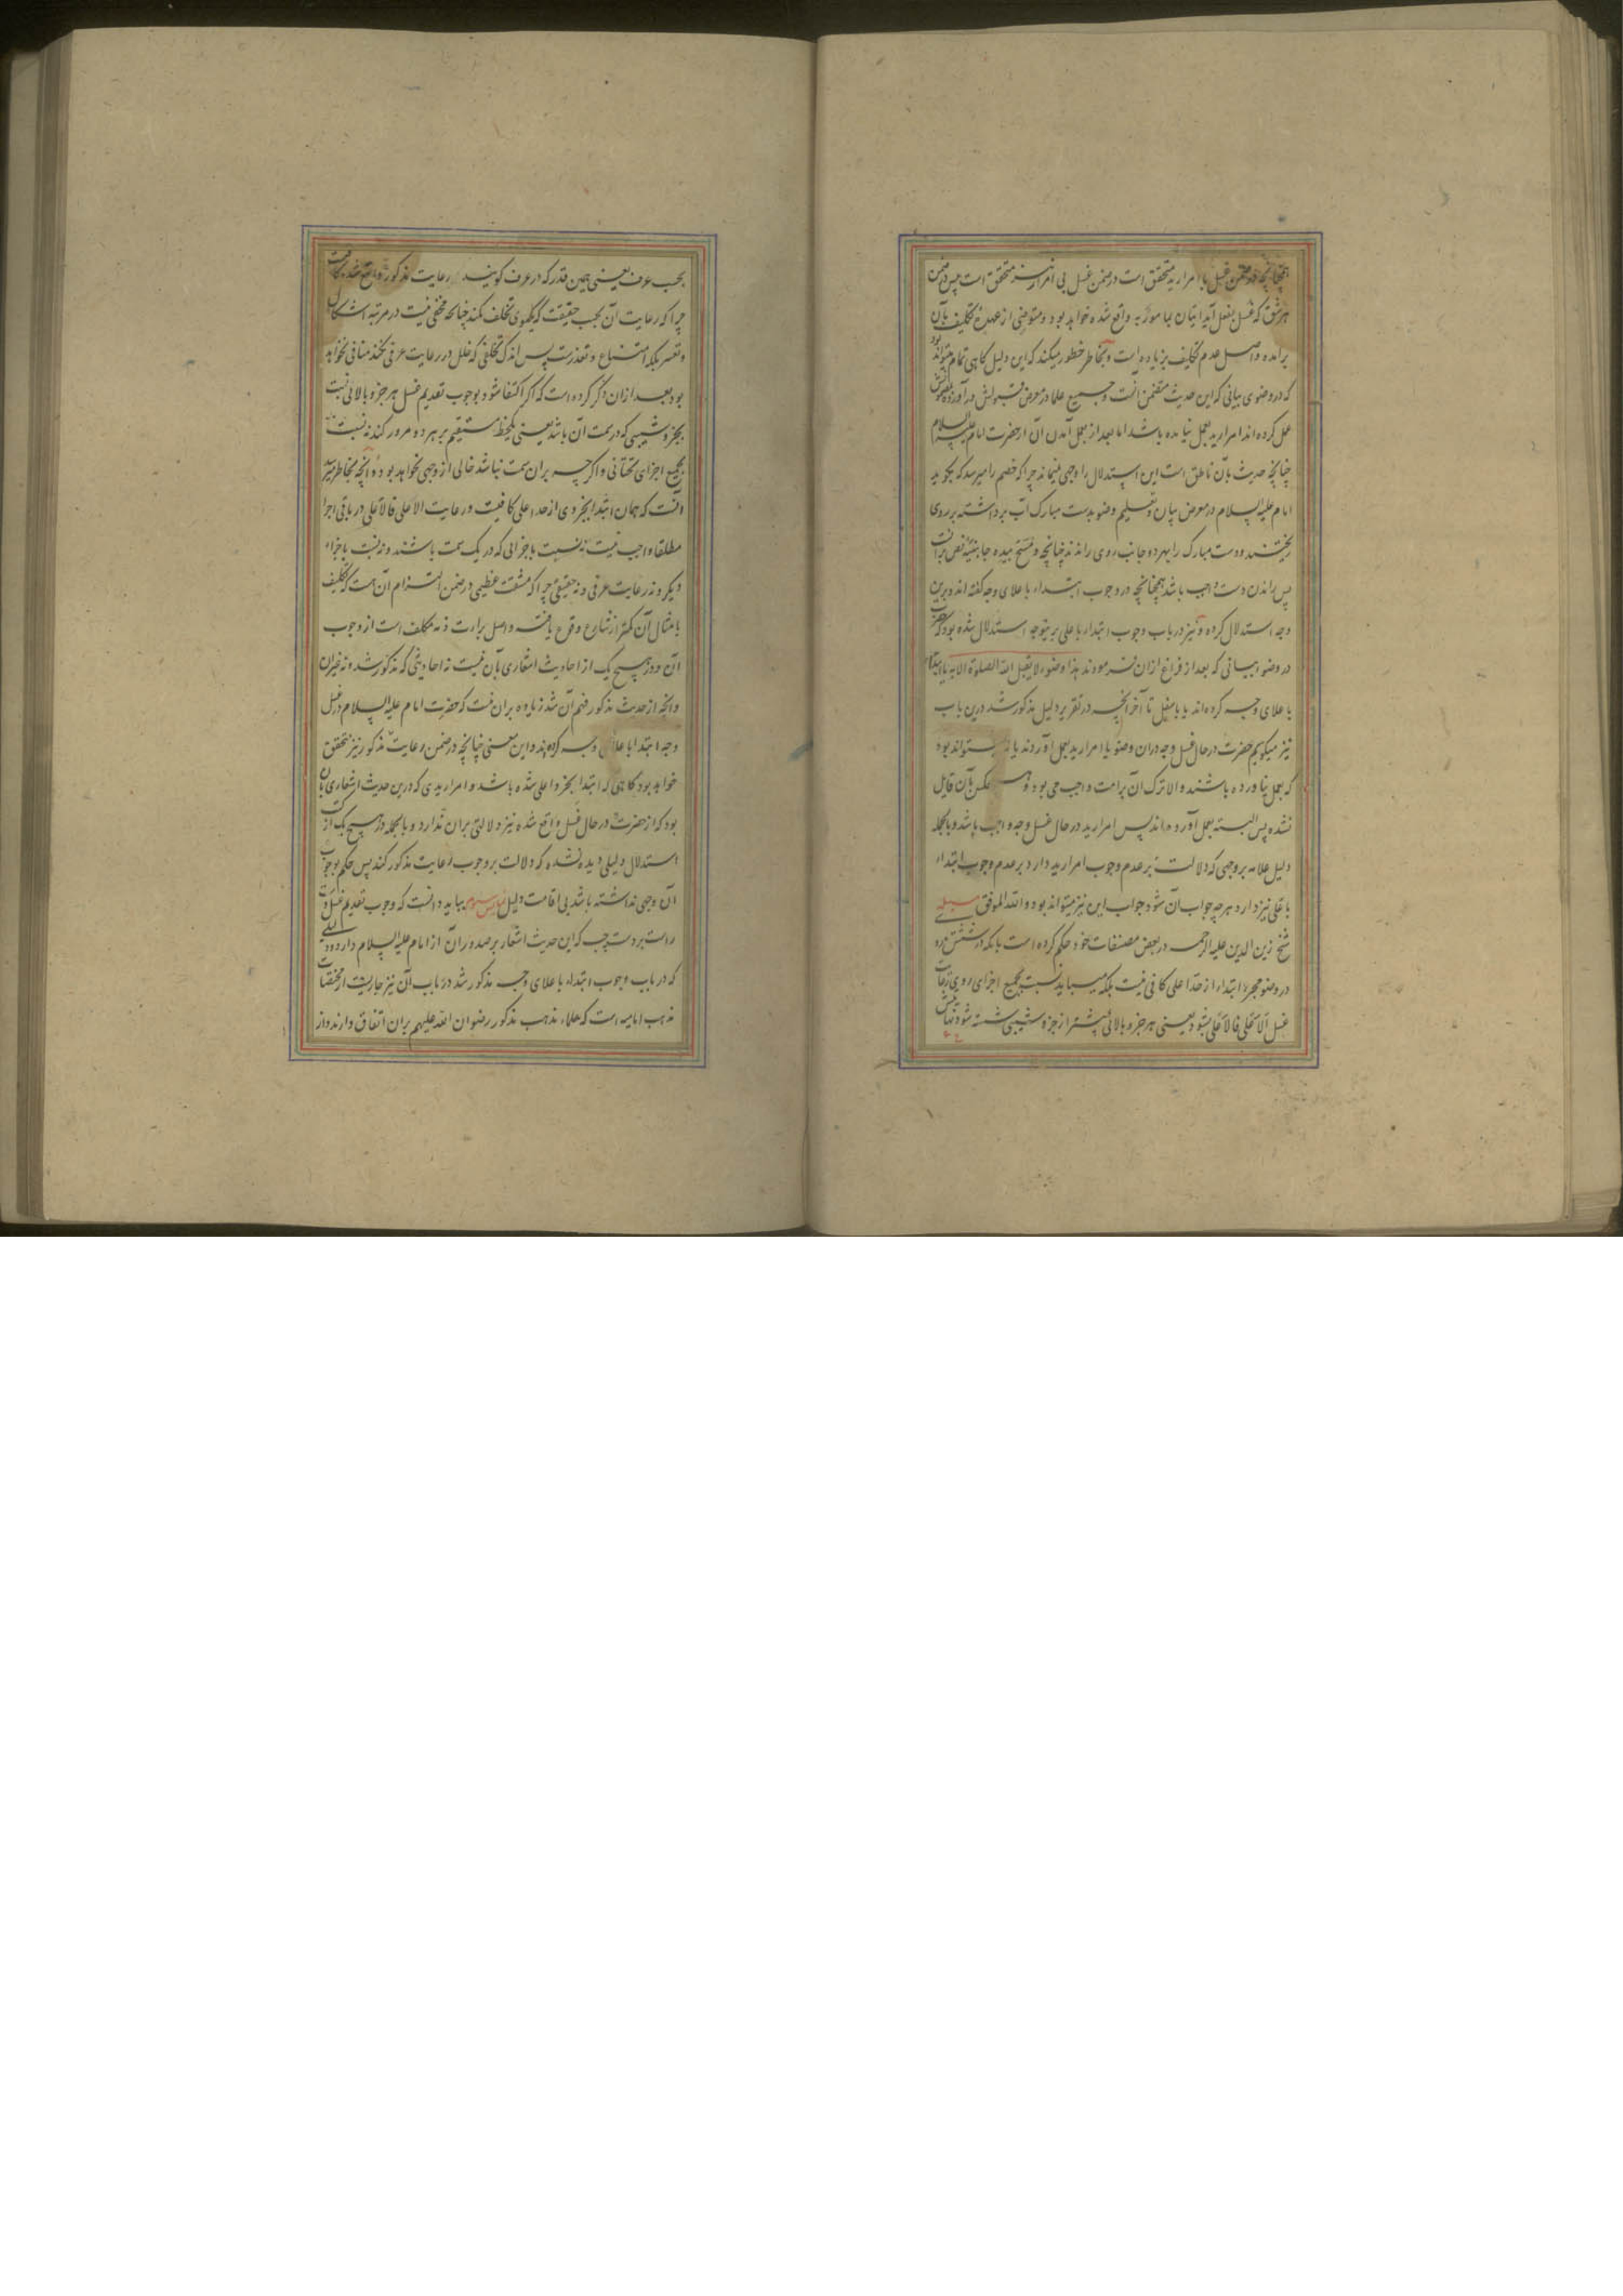 همچنانچه در ضمن غسل با امرار ید متحقق است در ضمن غسل بی امرار نیز متحقق است پس در ضمن
هر شق که غسل بفعل آید اتیان بما مور به واقع شده خواهد بود و متوضی از عهدهٔ تکلیف بآن
برآمده و اصل عدم تکلیف بزیاده است و بخاطر خطور میکند که این دلیل کاهی تمام میتواند بود
که در وضوی بیانی که این حدیث متضمن آنست و جمیع علما در معرض قبولش درآورده بمضمونش
عمل کرده اند امرار ید بعمل نیامده باشد اما بعد از بعمل آمدن آن از حضرت امام علیه السلام
چنانچه حدیث بآن ناطق است این استدلال را وجهی نمیماند چرا که خصم را میرسد که بکوید
امام علیه السلام در معرض بیان و تعلیم وضو بدست مبارک آب برداشته بر روی
ریختند و دست مبارک را بهر دو جانب روی راندند چنانچه و مسح بیده جانبیه نص بر آنست
پس راندن دست واجب باشد همچنانچه در وجوب ابتداء با علای وجه کفته اند و برین
وجه استدلال کرده و نیز در باب وجوب ابتداء باعلی برینوجه استدلال شده بود که حضرت
در وضوء بیانی که بعد از فراغ از ان فرمودند هذا وضوء لا یقبل الله الصلوة الا به یا ابتداء
با علای وجه کرده اند یا باسفل تا آخر آنچه در تقریر دلیل مذکور شد درین باب
نیز میکویم حضرت در حال غسل وجه در ان وضو یا امرار ید بعمل آوردند یا نه نمیتواند بود
که بعمل نیاورده باشند والا ترک آن بر امت واجب می بود و هیچکس بآن قایل
نشده پس البته بعمل آورده اند پس امرار ید در حال غسل وجه واجب باشد و بالجمله
دلیل علامه بر وجهی که دلالت بر عدم وجوب امرار ید دارد بر عدم وجوب ابتداء
باعلی نیز دارد هر چه جواب آن شود جواب این نیز میتواند بود والله الموفق
شیخ زین الدین علیه الرحمه در بعض مصنفات خود حکم کرده است بانکه در شستن رو
در وضو مجرد ابتداء از حد اعلی کافی نیست بلکه میباید نسبت بجمیع اجزای روی رعایت
غسل الاعلی فالاعلی بشود یعنی هر جزو بالائی پیشتر از جزو شیبی شسته شود نهایتش
بحسب عرف یعنی همین قدر که در عرف کویند رعایت مذکور واقع شد کافیست
چرا که رعایت آن بحسب حقیقت که یکموی تخلف نکند چنانچه مخفی نیست در مرتبه اشکال
و تعسر بلکه امتناع و تعذرست پس اندک تخلفی که خلل در رعایت عرفی نکند منافی نخواهد
بود بعد از ان ذکر کرده است که اکر اکتفا شود بوجوب تقدیم غسل هر جزو بالائی نسبت
بجزو شیبی که در سمت آن باشد یعنی یکخط مستقیم بر هر دو مرور کند نه نسبت
بجمیع اجزای تحتانی و اکر چه بر ان سمت نباشد خالی از وجهی نخواهد بود و آنچه بخاطر میرسد
آنست که همان ابتدا بجزوی از حد اعلی کافیست و رعایت الاعلی فالاعلی در باقی اجزا
مطلقا واجب نیست نه نسبت باجزائی که در یک سمت باشند و نه نسبت باجزاء
دیکر و نه رعایت عرفی و نه حقیقی چرا که مشقت عظیمی در ضمن التزام آن هست که تکلیف
بامثال آن کمتر از شارع وقوع یافته و اصل براءت ذمه مکلف است از وجوب
آن و در هیچ یک از احادیث اشعاری بآن نیست نه احادیثی که مذکور شد و نه غیر ان
و آنچه از حدیث مذکور فهم آن شد زیاده بر ان نیست که حضرت امام علیه السلام در غسل
وجه ابتدا با علای وجه کرده اند و این معنی چنانچه در ضمن رعایت مذکور نیز متحقق
خواهد بود کاهی که ابتدا بجزو اعلی شده باشد و امرار یدی که درین حدیث اشعاری بآن
بود که از حضرت در حال غسل واقع شده نیز دلالتی بر ان ندارد و بالجمله در هیچ یک از کتب
استدلال دلیلی دیده نشده که دلالت بر وجوب رعایت مذکور کند پس حکم بوجوب
آن وجهی نداشته باشد بی اقامت دلیل بباید دانست که وجوب تقدیم غسل دست
راست بر دست چپ که این حدیث اشعار بر صدور آن از امام علیه السلام دارد و دلیلی
که در باب وجوب ابتداء با علای وجه مذکور شد در باب آن نیز جاریست از مختصات
مذهب امامیه است که علماء مذهب مذکور رضوان الله علیهم بر ان اتفاق دارند و از